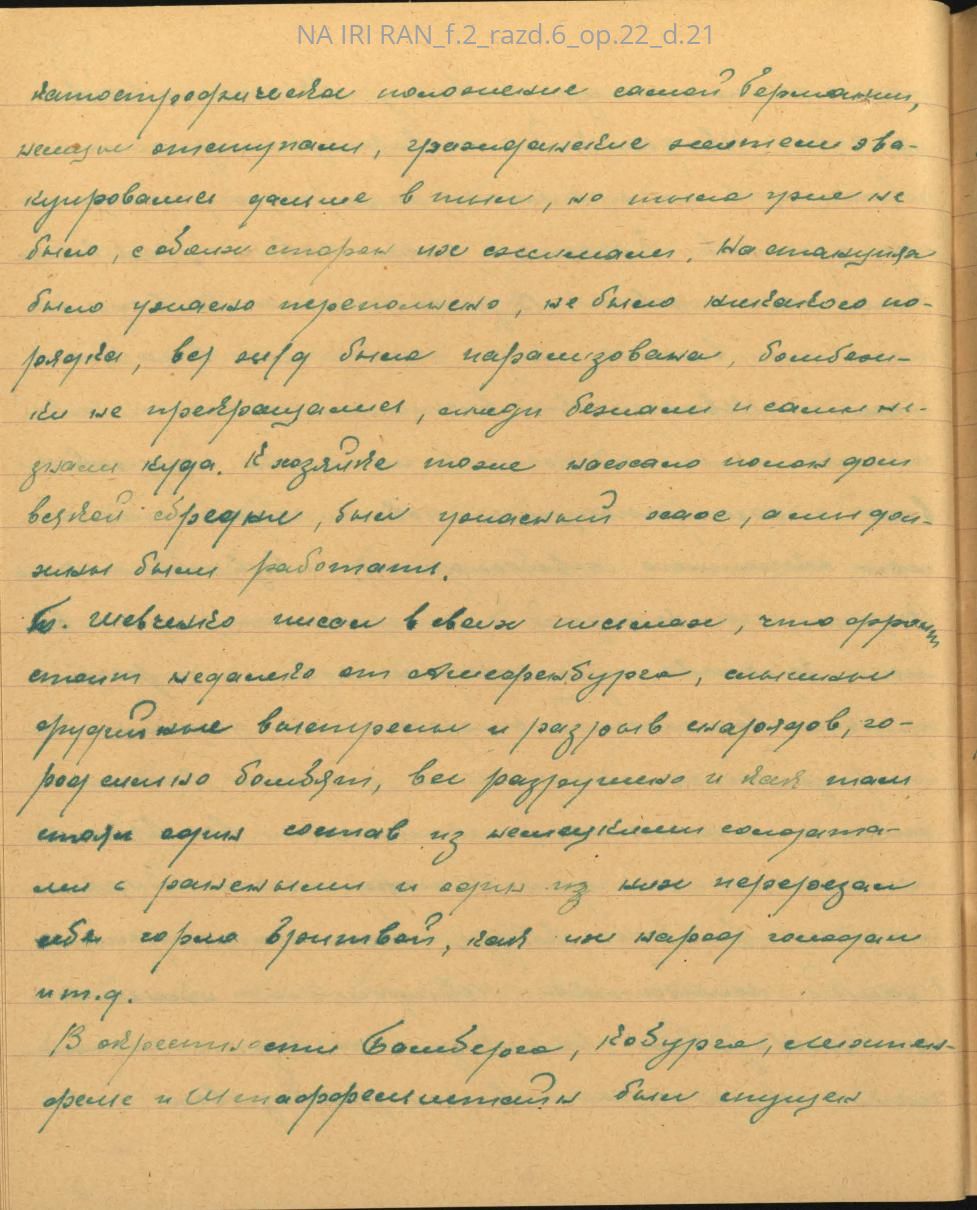 NA IRI RAN_f.2_razd.6_op.22_d.21
катострофическа положение самой Германии,
немцы отступали, гражданские жители эва-
куировались дальше в тыл, но тыла уже не
было, с обоих сторон их сжимали. На станциях
было ужасно переполнено, не было никакого по-
рядка, вся ж/д была парализована, бомбёж-
ки не прекращались, люди бежали и сами не-
знали куда. К хозяйке тоже наехало полон дом
всякой сбредни, был ужасный хаос, а мы дол-
жны были работать.
Шевченко писал в своих письмах, что фронт
стоит недалеко от Ашафенбурга, слышны
орудийные выстрелы и разрыв снарядов, го-
род сильно бомбят, все разрушено и как там
стоял один состав из немецкими солдата-
ми с ранеными и один из них перерезал
себе горло бритвой, как их народ голодал
и т.д.
В окрестности Бамберга, Кобурга, Лихтен-
фельс и Штаффельштайн был спущен